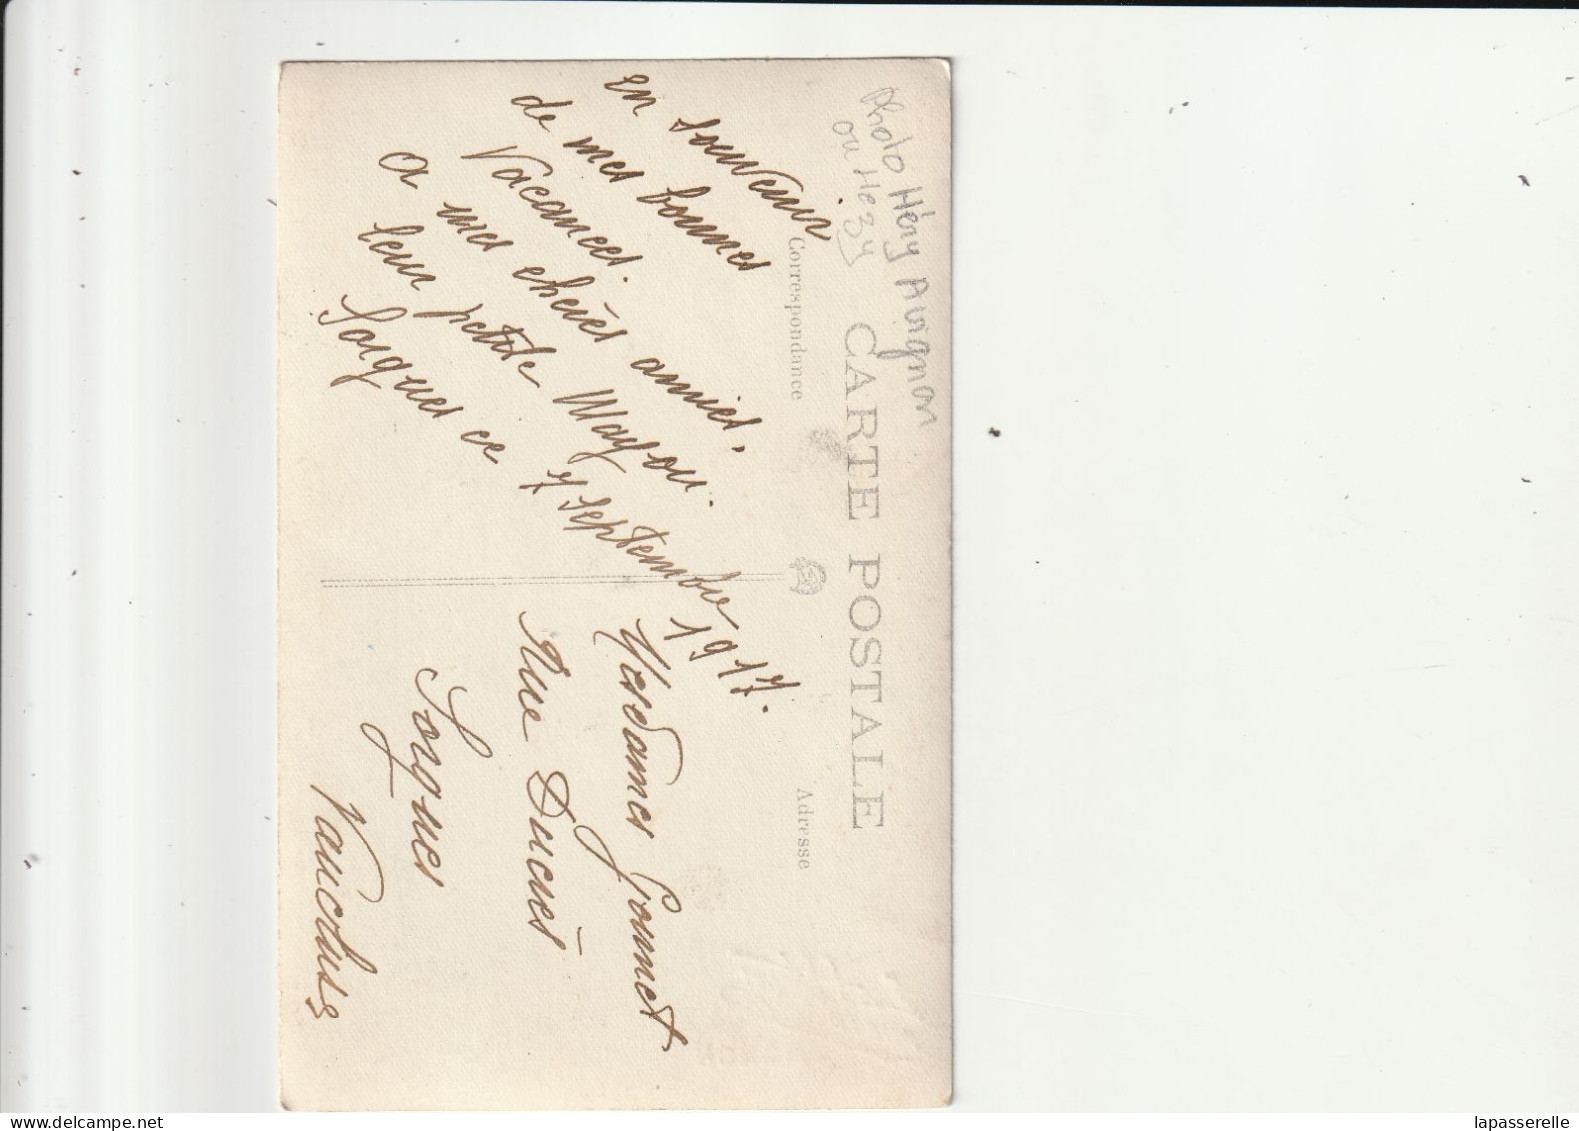 Photo Héry Avignon
ou Hezy
CARTE POSTALE
Correspondance
en souvenir
de mes bonnes
Vacances.
a mes chères amies,
leur petite Mayou.
Sorgues ce 7 septembre 1917.
Adresse
Mesdames Gounet
Rue Ducrès
Sorgues
Vaucluse
delcampe.net
lapasserelle